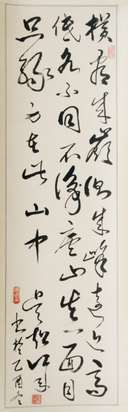 橫看成嶺側成峰遠近高
低各不同不識廬山真面目
只緣身在此山中
書於乙酉